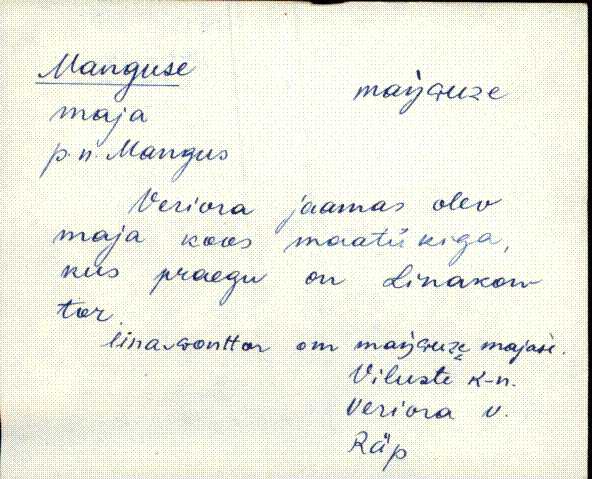 Manguse
maŋGuze
maja
p. n. Mangus
Veriora jaamas olev
maja koos maatükiga,
kus praegu on Linakon-
tor.
linaGonttor om maŋGuze majasə.
Viluste k-n.
Veriora v.
Räp